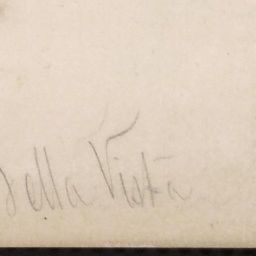 Bella Vista